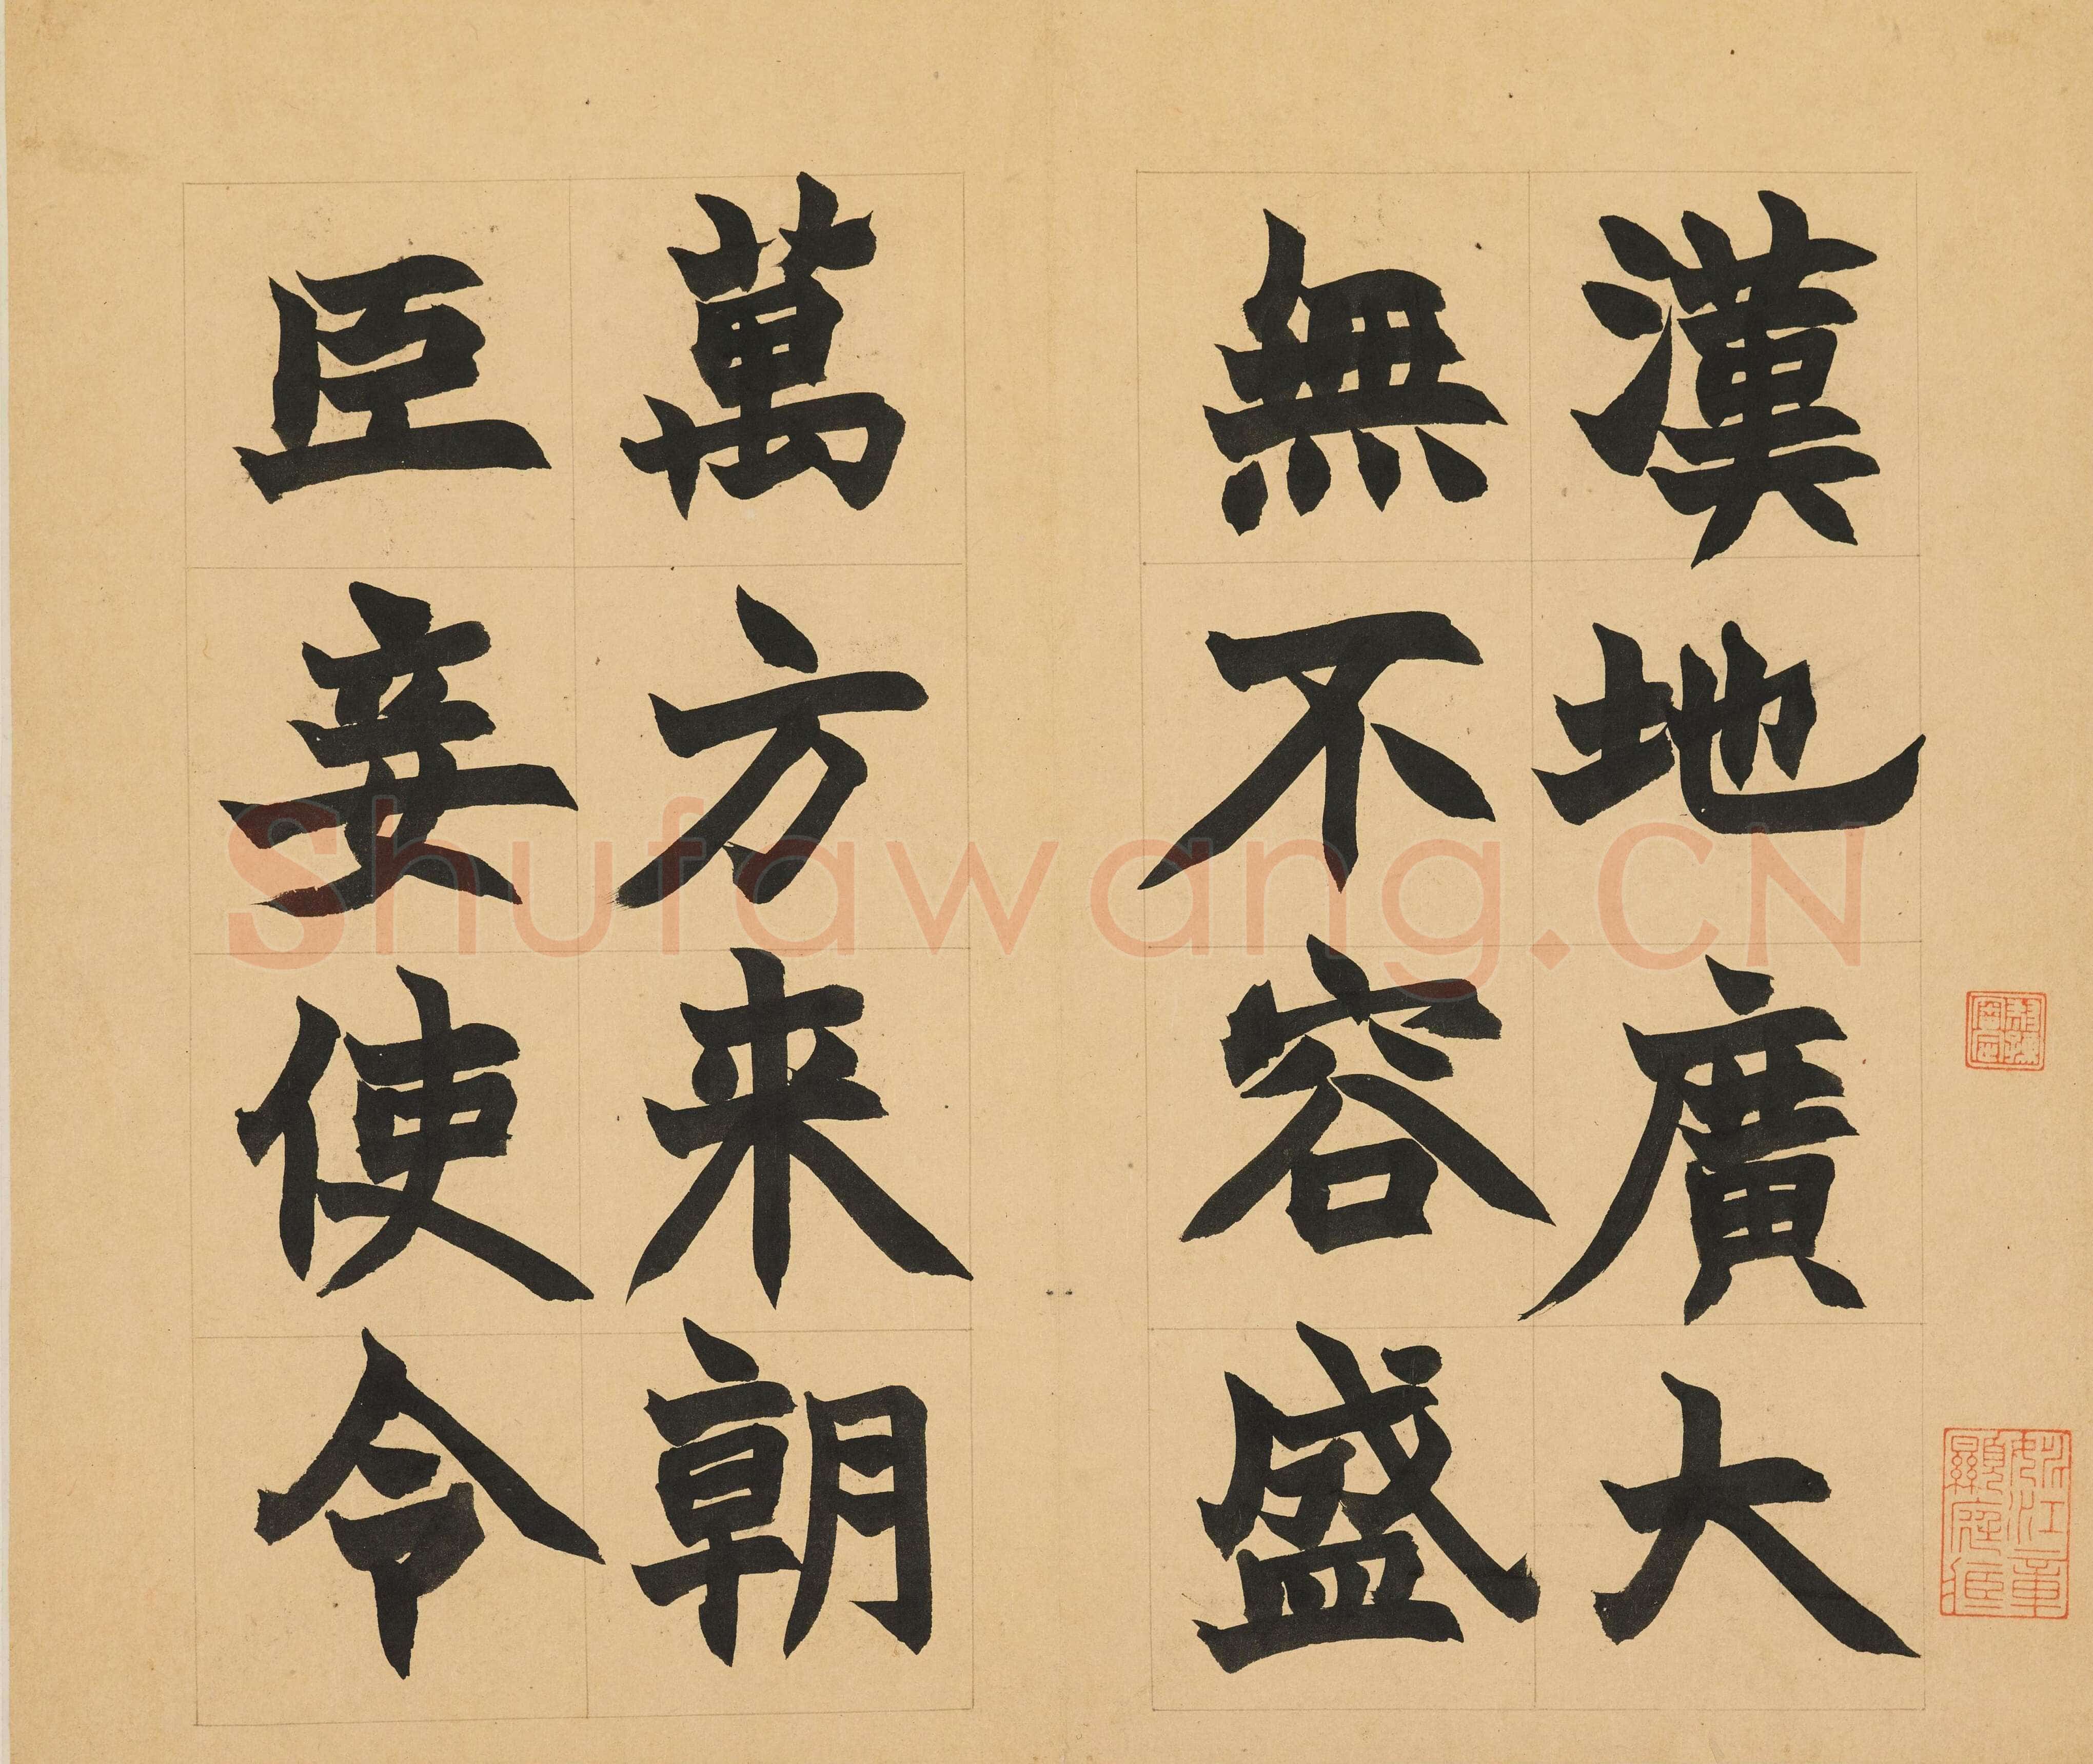 漢地廣大
無不容盛
萬方来朝
臣妾使令
Shufawang.CN